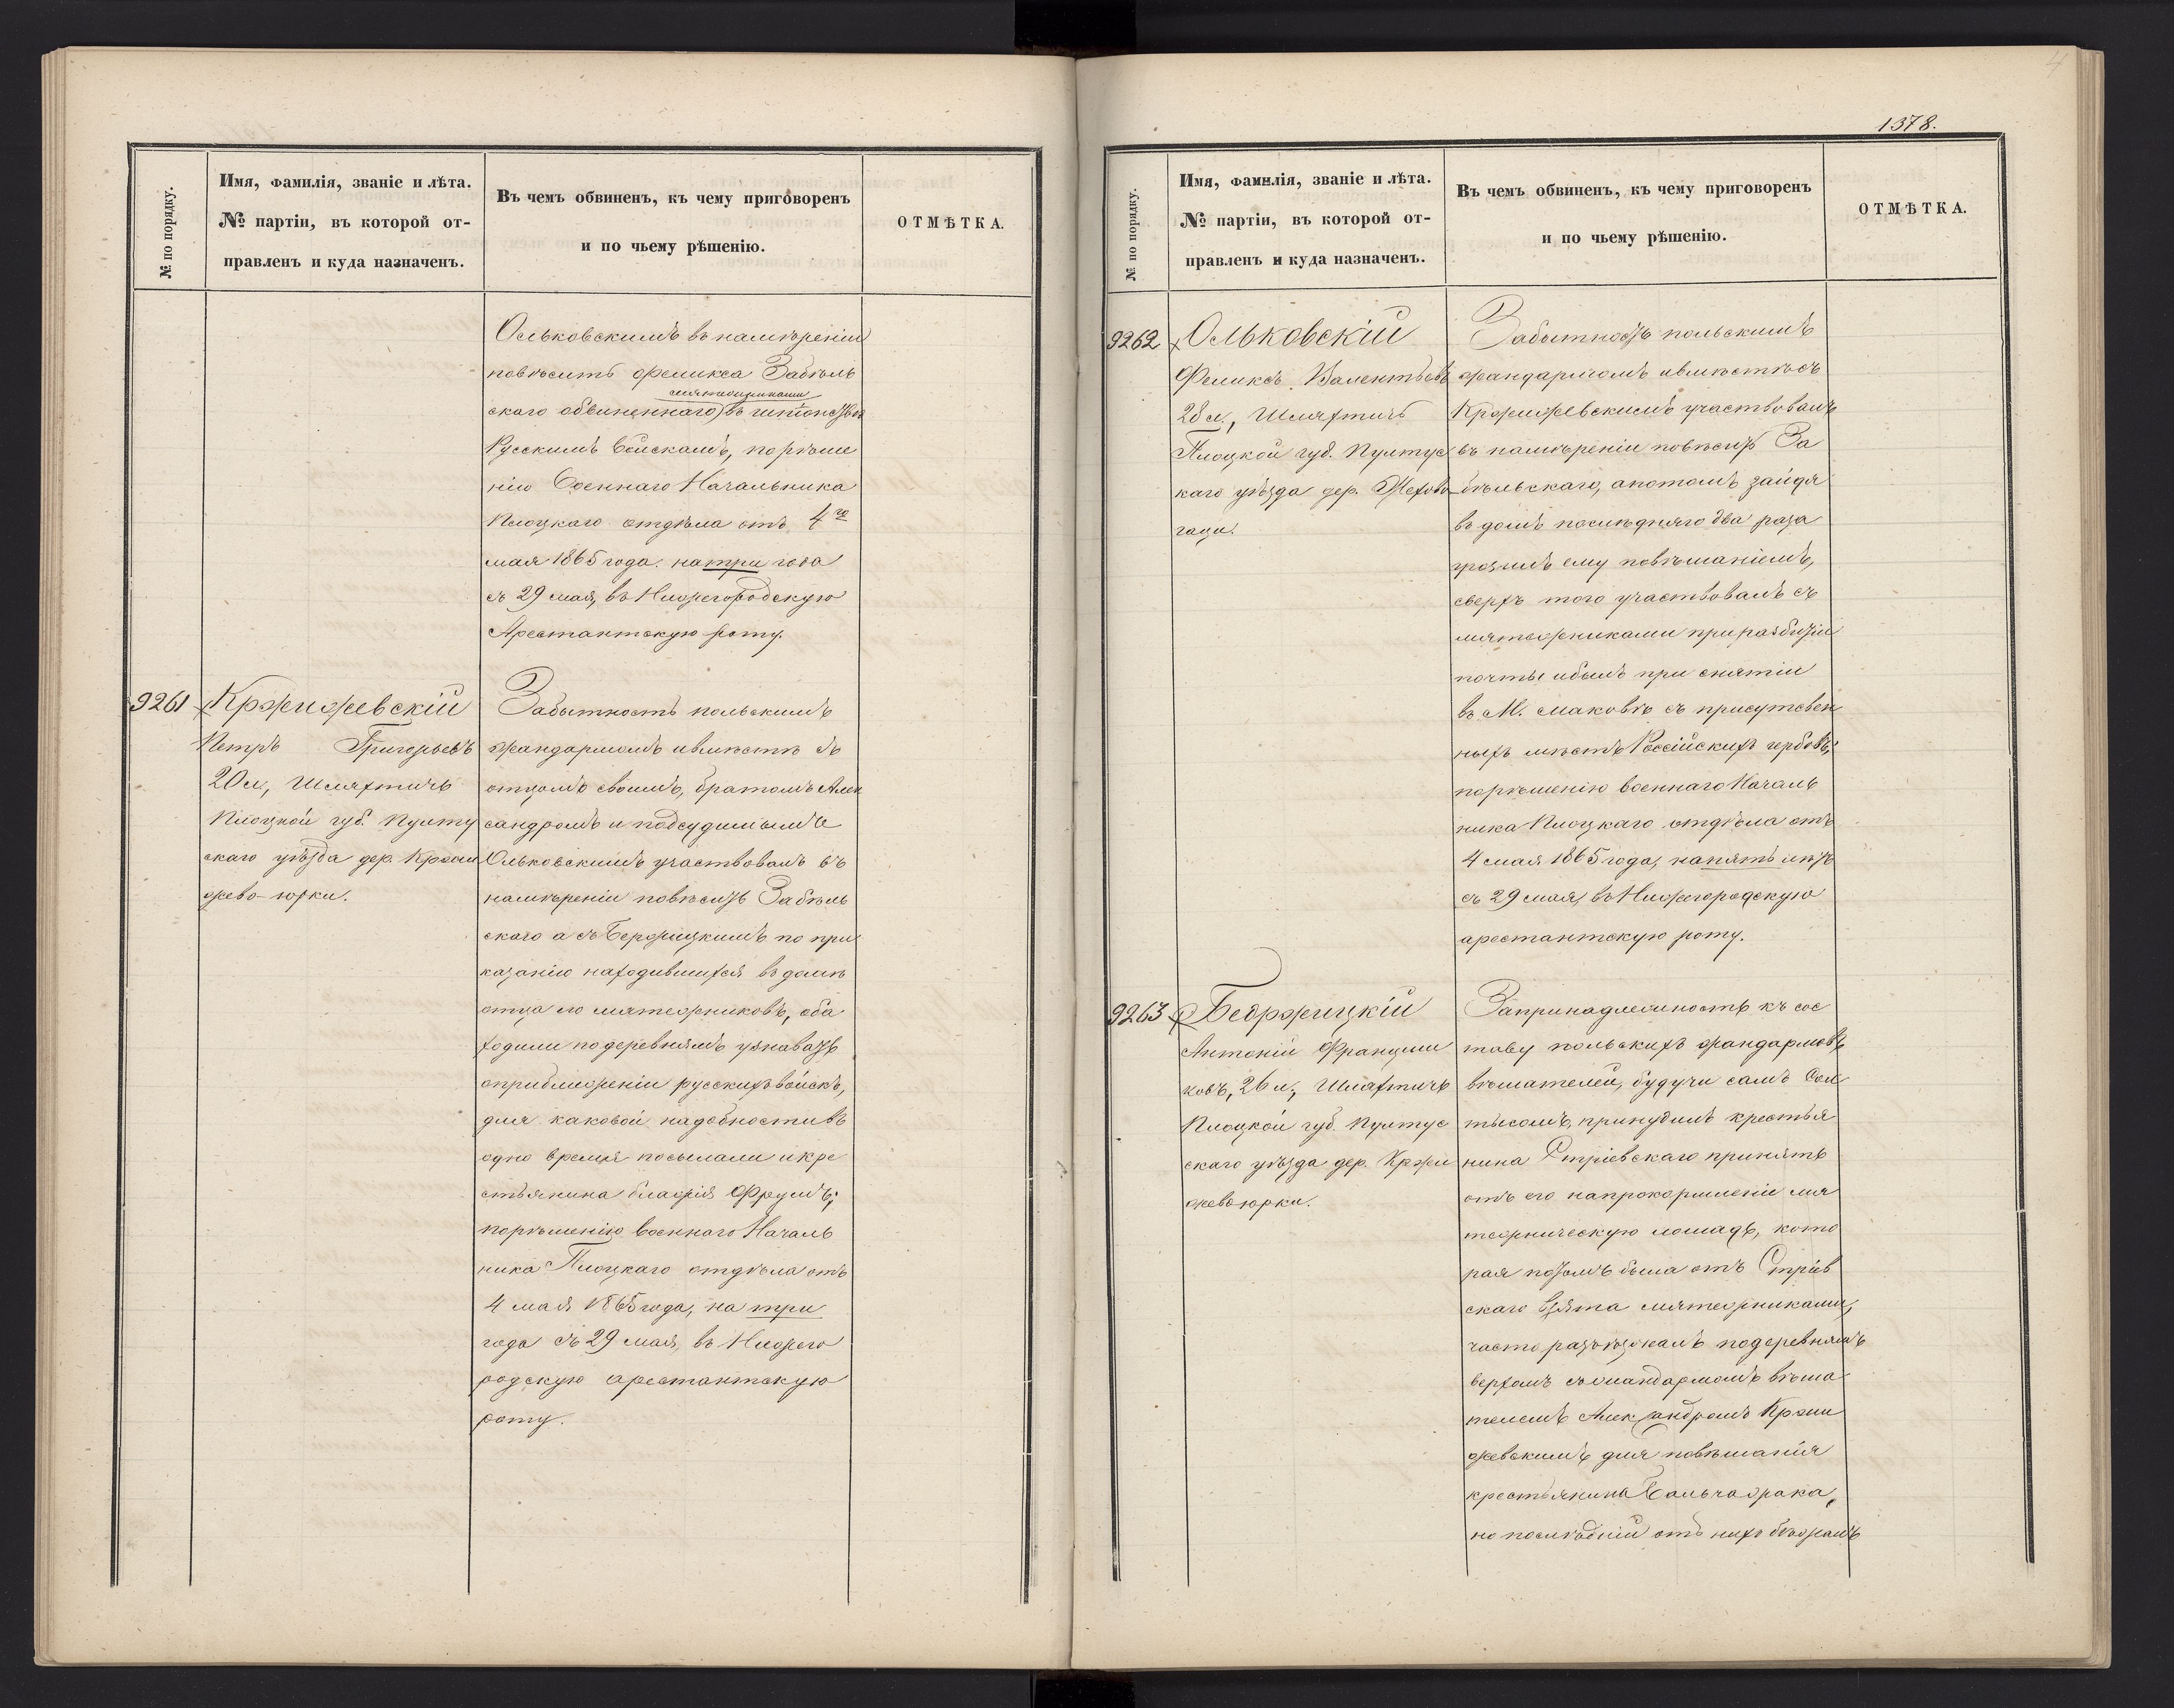 № по порядку.
Имя, фамилія, званіе и лѣта.
№ партіи, въ которой от-
правленъ и куда назначенъ.
Въ чемъ обвиненъ, къ чему приговоренъ
и по чьему рѣшенію.
ОТМѢТКА.
Ольковскимъ въ намѣреніи
повѣсить Феликса Забѣль
мятежниками
скаго обвиненнаго въ шпіонствѣ
Русскимъ Войскамъ, по рѣше
нію Военнаго Начальника
Плоцкаго отдѣла отъ 4го
мая 1865 года на три года
съ 29 мая, въ Нижегородскую
Арестантскую роту.
9261 Кржижевскій
Петръ Григорьевъ
20 л., Шляхтичъ
Плоцкой губ. Пулту
скаго уѣзда дер. Кржи
жево-юрки.
За бытность польскимъ
жандармомъ и вмѣстѣ съ
отцомъ своимъ, братомъ Алек
сандромъ и подсудимымъ
Ольковскимъ участвовалъ въ
намѣреніи повѣсить Забѣль
скаго а съ Бержицкимъ по при
казанію находившихся въ домѣ
отца его мятежниковъ, оба
ходили по деревнямъ узнавать
о приближеніи русскихъ войскъ,
для каковой надобности въ
одно время посылали и кре
стьянина Блажія;
по рѣшенію военнаго Началь
ника Плоцкаго отдѣла отъ
4 мая 1865 года, на три
года съ 29 мая, въ Нижего
родскую арестантскую
роту.
1378.
4
№ по порядку.
Имя, фамилія, званіе и лѣта.
№ партіи, въ которой от-
правленъ и куда назначенъ.
Въ чемъ обвиненъ, къ чему приговоренъ
и по чьему рѣшенію.
ОТМѢТКА.
9262 Ольковскій
Феликсъ Валентьевъ
28 л., Шляхтичъ
Плоцкой губ. Пултус
каго уѣзда дер.
гаци.
За бытность польскимъ
жандармомъ и вмѣстѣ съ
Кржижевскимъ участвовалъ
въ намѣреніи повѣсить За
бѣльскаго, а потомъ зайдя
въ домъ послѣдняго два раза
грозилъ ему повѣшаніемъ,
сверхъ того участвовалъ съ
мятежниками при разбитіи
почты и былъ при снятіи
въ М. Маковѣ съ присутсвен
ныхъ мѣстъ Россійскихъ гербовъ;
по рѣшенію военнаго Началь
ника Плоцкаго отдѣла отъ
4 мая 1865 года, на пять лѣтъ
съ 29 мая, въ Нижегородскую
арестантскую роту.
9263 Бедржицкій
Антоній Францишк
ковъ, 26 л., Шляхтичъ
Плоцкой губ. Пултус
скаго уѣзда дер. Кржи
жево юрки.
За принадлежность къ сос
таву польскихъ жандармовъ
вѣшателей, будучи самъ Сол
тысомъ, принудилъ крестья
нина Стріевскаго принять
отъ его на прокормленіе мя
тежническую лошадь, кото
рая потомъ была отъ Стріев
скаго взята мятежниками,
часто разъѣзжалъ по деревнямъ
верхомъ съ жандармомъ вѣша
телемъ Александромъ Кржи
жевскимъ для повѣшанія
крестьянина
но послѣдній отъ нихъ бѣжалъ